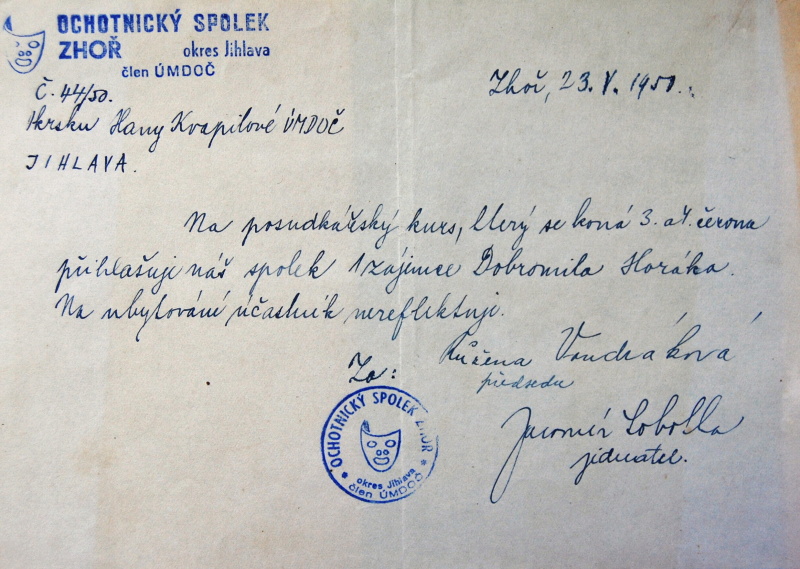 OCHOTNICKÝ SPOLEK
ZHOŘ okres Jihlava
člen ÚMDOČ
Č. 44/50.
Zhoř, 23. V. 1950.
Okrsku Hany Kvapilové ÚMDOČ
JIHLAVA.
Na posudkářský kurs, který se koná 3. a 4. června
přihlašuje náš spolek 1 zájemce Dobromila Horáka.
Na ubytování účastník nereflektuje.
Za:
Růžena Vondráková
předseda
Jaromír Sobotka
jednatel.
OCHOTNICKÝ SPOLEK ZHOŘ
okres Jihlava
člen ÚMDOČ